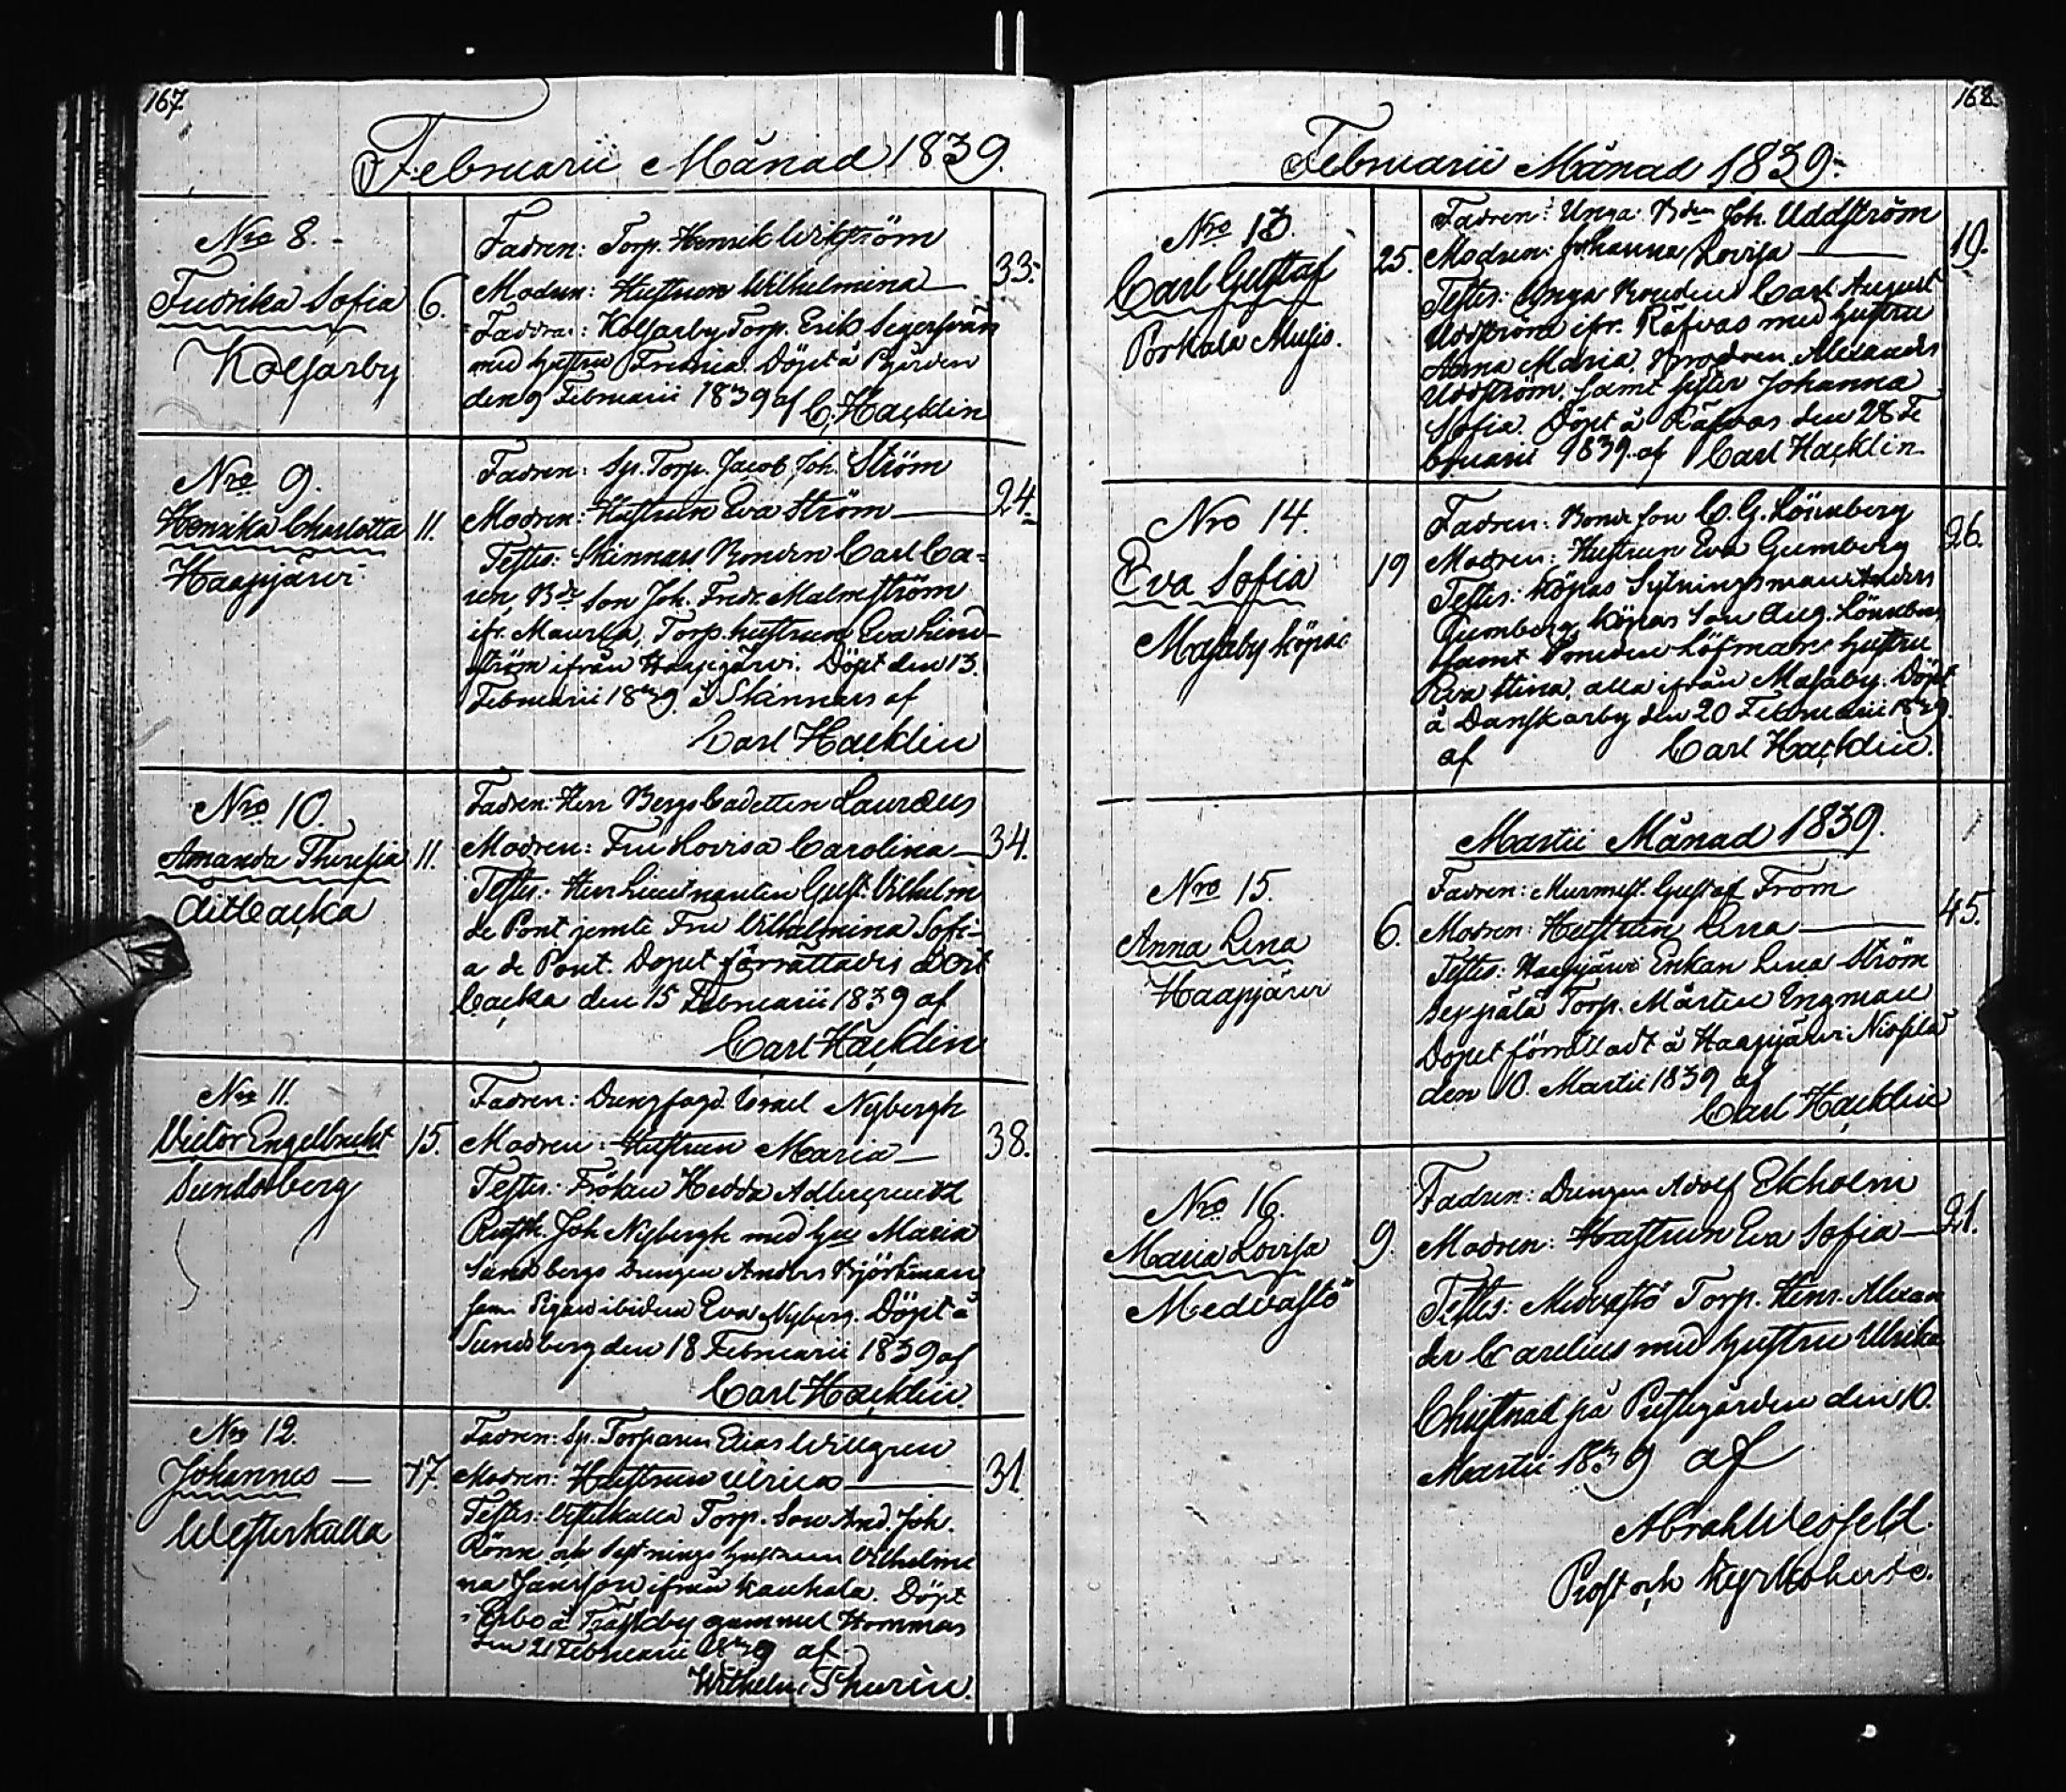 167.
Februarii Månad 1839.
Nro 8.
Fredrika Sofia
Kolsarby
6.
Fadren: Torp. Henrik Wikström
Modren: Hustrun Wilhelmina
Faddrar: Kolsarby Torp. Erik Segersvän
med hustru Fredrica. Döpt å Pgården
den 9 Februarii 1839 af C. Hacklin
33.
Nro 9.
Henrika Charlotta
Haapjärvi
11.
Fadren: Sp. Torp. Jacob Joh. Ström
Modren: Hustrun Eva Ström
Testes: Skinnars Bonden Carl Ca-
ien, Bde Son Joh. Fredr. Malmström
ifr. Maurla, Torp. hustrun Eva Lind-
ström ifrån Haapjärvi. Döpt den 13.
Februarii 1839. å Skinnars af
Carl Hacklin
24.
Nro 10.
Amanda Theresia
Oitbacka
11.
Fadren: Herr Bergs Cadetten Lauræus
Modren: Fru Lovisa Carolina
Testes: Herr Lieutnanten Gust. Vilhelm
de Pont jemte Fru Vilhelmina Sofi-
a de Pont. Dopet förrättades å Oit
backa den 15 Februarii 1839 af
Carl Hacklin
34.
Nro 11.
Victor Engelbrecht
Sundsberg
15.
Fadren: Drengfogd. Israel Nybergh
Modren: Hustrun Maria
Testes: Fröken Hedda Adlercreutz
Rusth. Joh Nybergh med hu Maria
Sundsbergs Drengen Anders Björkman
samt Pigan ibidem Eva Nyberg. Döpt å
Sundsberg den 18 Februarii 1839 af
Carl Hacklin.
38.
Nro 12.
Johannes
Westerkulla
17.
Fadren: Sp. Torparen Elias Willgren
Modren: Hustrun Ulrica
Testes: Vesterkulla Torp. Son And. Joh.
Rönn och Sytnings hustrun Vilhelmi
na Jansson ifrån Kauhala. Döpt
i Esbo å Träskby gammel Hommas
den 21 Februarii 1839 af
Wilhelm Thurén.
31.
168.
Februarii Månad 1839.
Nro 13.
Carl Gustaf
Porkala Mujis.
25.
Fadren: Unga Bden Joh. Uddström
Modren: Johanna Lovisa
Testes: Unga Bonden Carl August
Uddström ifr. Räfvas med hustru
Anna Maria, Brodren Alexander
Uddström, samt syster Johanna
Sofia. Döpt å Räfvas den 28 Fe
bruarii 1839. af Carl Hacklin
19.
Nro 14.
Eva Sofia
Masaby Köpas
19
Fadren: Bonde Son C. G. Lönnberg
Modren: Hustrun Eva Gumberg
Testes: Köpas Sytningsman Anders
Gumberg, Köpas Son Aug. Lönnberg
samt Bonden Löfmans hustru
Eva Stina, alla ifrån Masaby. Döpt
å Danskarby den 20 Februarii 1839.
af Carl Hacklin.
26.
Martii Månad 1839.
Nro 15.
Anna Lena
Haapjärvi
6.
Fadren: Murmest. Gustaf From
Modren: Hustrun Lena
Testes: Haapjärvi Enkan Lena Ström
Seppälä Torp. Mårten Engman
Dopet förrättadt å Haapjärvi
den 10. Martii 1839 af
Carl Hacklin
45.
Nro 16.
Maria Lovisa
Medvastö
9.
Fadren: Drengen Adolf Ekholm
Modren: Hustrun Eva Sofia
Testes: Medvastö Torp. Henr. Alexan
der Carelius med hustru Ulrika
Christnad på Prestgården den 10.
Martii 1839 af
Abrah Weofeld.
Prost och Kyrkoherde.
21.